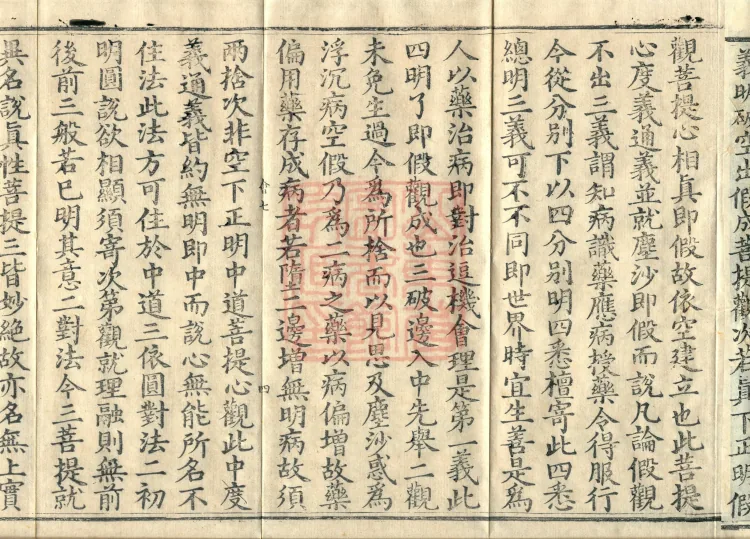 義明破空出假成菩提觀次若真下正明假
觀菩提心相真即假故依空建立也此菩提
心度義通義並就塵沙即假而說凡論假觀
不出三義謂知病識藥應病授藥令得服行
今從分別下以四分別明四悉檀寄此四悉
總明三義可不不同即世界時宜生善是為
人以藥治病即對治逗機會理是第一義此
四明了即假觀成也三破邊入中先舉二觀
未免生過今為所捨而以見思及塵沙惑為
浮沉病空假乃為二病之藥以病偏增故藥
偏用藥存成病者若隋二邊增無明病故須
兩捨次非空下正明中道菩提心觀此中度
義通義皆約無明即中而說心無能所名不
住法此法方可住於中道三依圓對法二初
明圓說欲相顯須寄次第觀就理融則無前
後前三般若已明其意二對法今三菩提就
異名說真性菩提三皆妙絕故亦名無上實
弁七
四